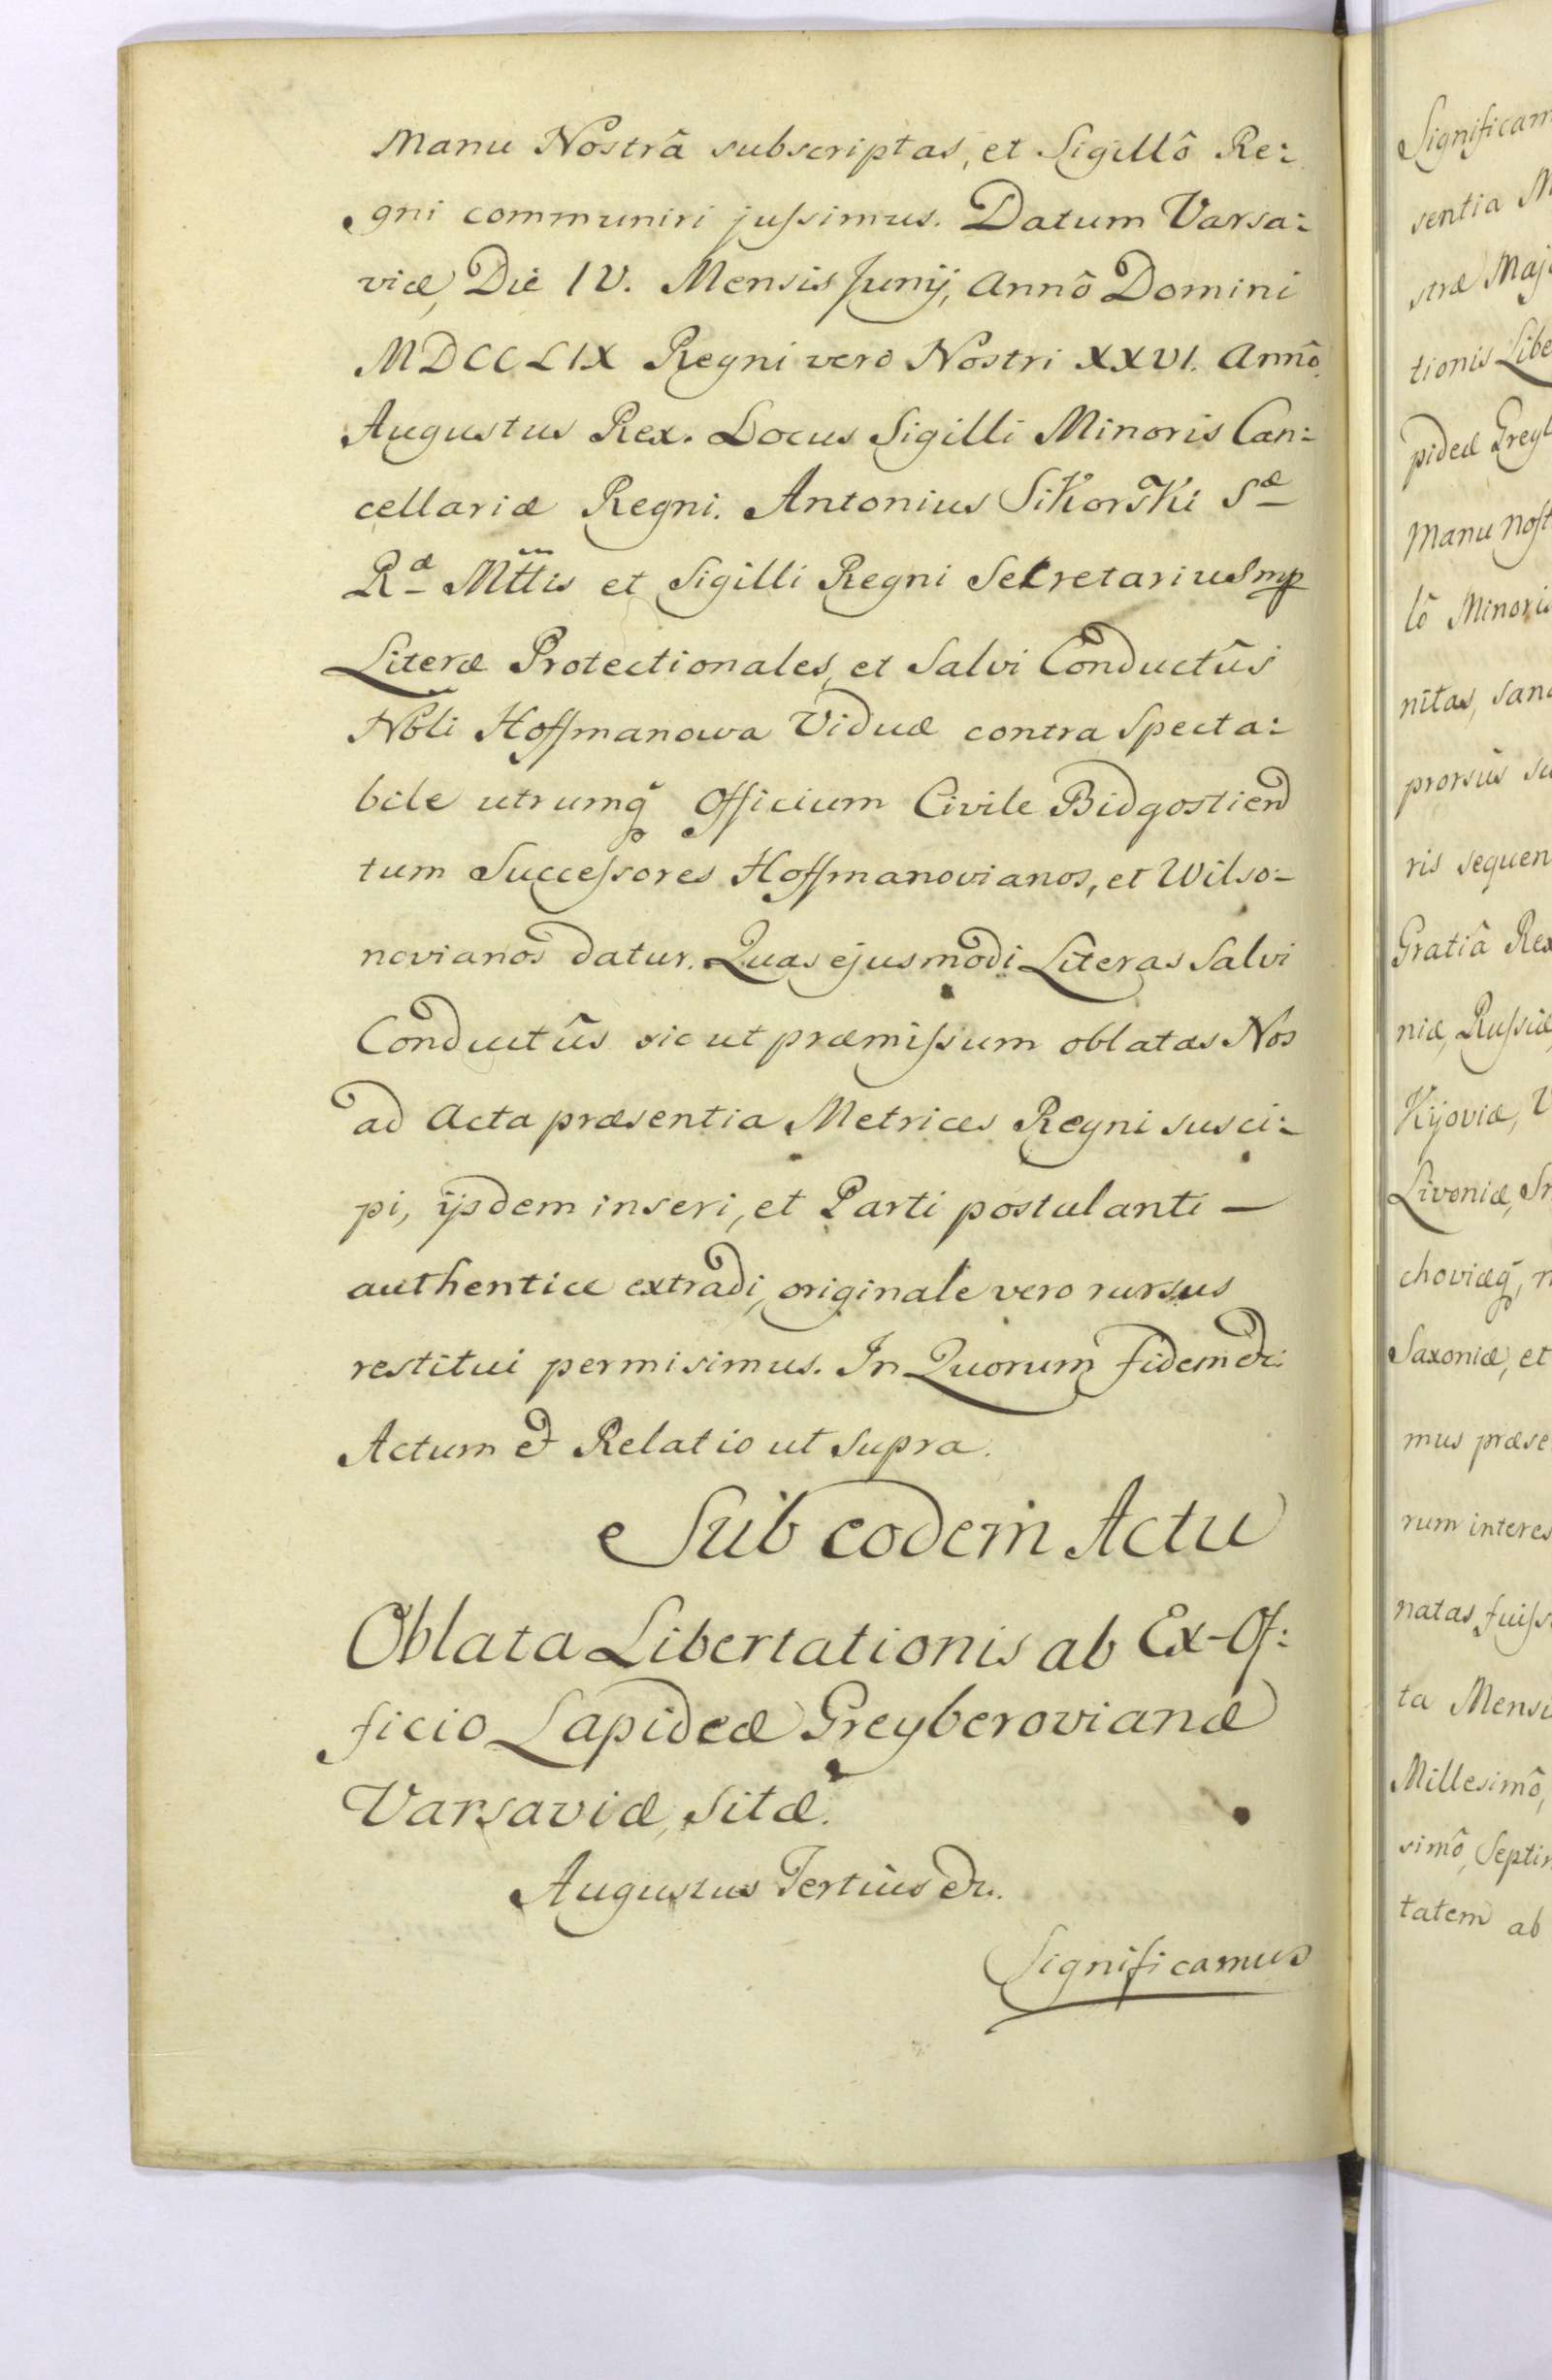 Manu Nostrâ subscriptas, et Sigillô Re:
gni communiri jussimus. Datum Varsa:
viæ, Die IV. Mensis Junij, Annô Domini
MDCCLIX Regni vero Nostri XXVI. Annô.
Augustus Rex. Locus Sigilli Minoris Can:
cellariæ Regni. Antonius Sikorski Sæ
Ræ Mttis et Sigilli Regni Secretarius mp
Literæ Protectionales, et Salvi Conductûs
Nbli Hoffmanowa Viduæ contra Specta:
bile utrumq Officium Civile Bidgostien
tum Successores Hoffmanovianos, et Wilso:
novianos datur. Quas ejusmodi Literas Salvi
Conductûs sic ut præmissum oblatas Nos
ad Acta præsentia Metrices Regni susci:
pi, ijsdem inseri, et Parti postulanti —
authentice extradi, originale vero rursus
restitui permisimus. In Quorum fidem etc:
Actum et Relatio ut Supra.
Sub eodem Actu
Oblata Libertationis ab Ex-Of:
ficio Lapideæ Greyberovianæ
Varsaviæ, sitæ.
Augustus Tertius etc.
Significamus
Significam
sentia M
stræ Maje
tionis Libe
pideæ Greyb
Manu Nost
lô Minoris
nitas, sana
prorsus su
ris sequen
Gratiâ Rex
niæ, Russiæ,
Kijoviæ, V
Livoniæ, Sm
choviæq, n
Saxoniæ, et
mus præse
rum interes
natas fuiss
ta Mensi
Millesimô,
simô, Septin
tatem ab